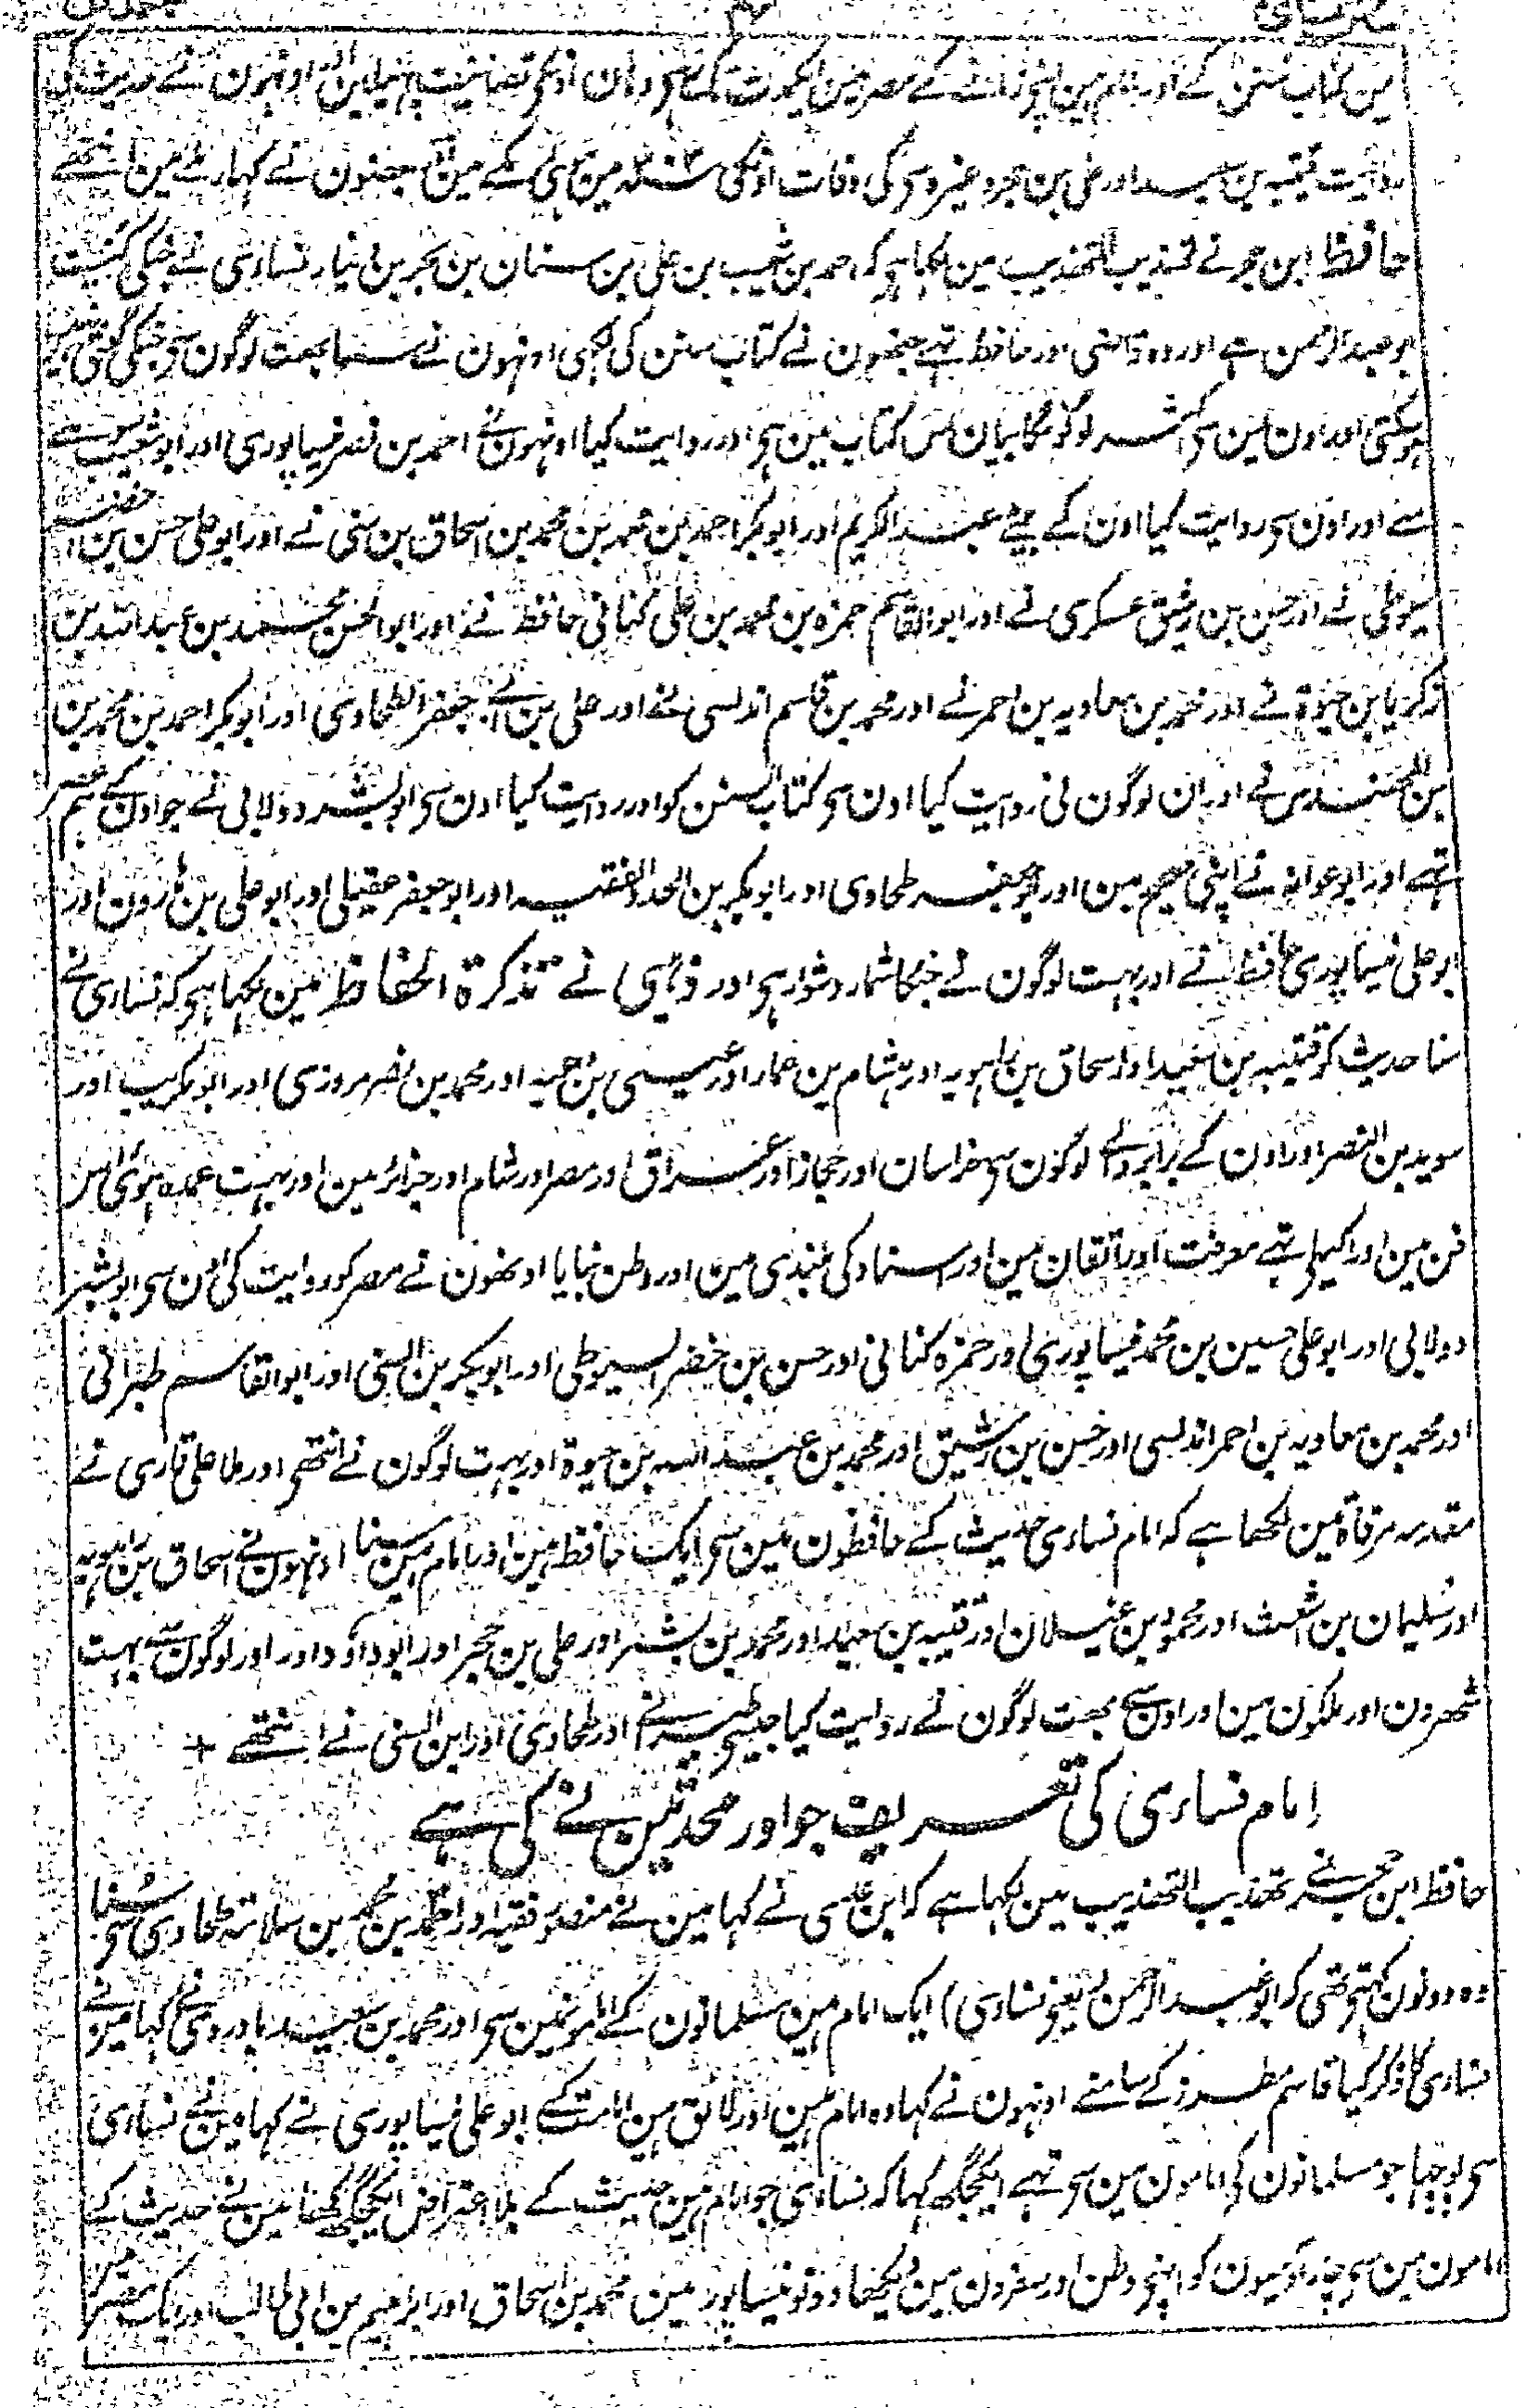 ہین کتاب سنن کے اور امام ہین اپنے زمانے کے مصر مین سکونت رکھتے تھے وہان اونکی تصانیف پھیلین اونہون نے حدیث کی
روایت قتیبہ بن سعید اور علی بن حجر وغیرہ سی کی وفات اونکی مین ہوئی مین جنہون نے کہا انتھے
حافظ ابن حجر نے تہذیب التہذیب مین لکھا ہی کہ احمد بن شعیب بن علی بن سنان بن بحر بن دینار نسائی نے جنکی کنیت
ابو عبدالرحمن ہے اور وہ قاضی اور حافظ تھے جنھون نے کتاب سنن کی لکھی اونہون نے سنا بہت لوگون سی جنکی گنتی نہین
ہو سکتی اور اون مین سی اکثر لوگونکا بیان اس کتاب مین ہی اور روایت کیا اونہون نے احمد بن نصر نیساپوری اور ابو شعیب سوسی
سے اور اون سی روایت کیا اون کے بیٹے عبد الکریم اور ابو بکر احمد بن محمد بن اسحاق بن سنی نے اور ابو علی حسن بن خضر
سیوطی نے اور حسن بن رشیق عسکری نے اور ابو القاسم حمزہ بن محمد بن علی کنانی حافظ نے اور ابو الحسن محمد بن عبداللہ بن
زکریا بن حیوۃ نے اور محمد بن معاویہ بن احمر نے اور محمد بن قاسم اندلسی نے اور علی بن ابی جعفر الطحاوی اور ابو بکر احمد بن محمد بن
بن المہندس نے اور ان لوگون نی روایت کیا اون سی کتاب السنن کو اور روایت کیا اون سی ابو بشر دولابی نے جو اون کے ہم عصر
تھے اور ابو عوانہ نے اپنی صحیح مین اور ابو جعفر طحاوی اور ابو بکر بن الحداد الفقیہ اور ابو جعفر عقیلی اور ابو علی بن ہارون اور
ابو علی نیساپوری حافظ نے اور بہت لوگون نے جنکا شمار دشوار ہی اور ذہبی نے تذکرۃ الحفاظ مین لکھا ہی کہ نسائی نے
سنا حدیث کو قتیبہ بن سعید اور اسحاق بن راہویہ اور ہشام بن عمار اور عیسی بن حمید اور محمد بن نصر مروزی اور ابو کریب اور
سوید بن النصر اور اون کے برابر والے لوگون سی خراسان اور حجاز اور عراق اور مصر اور شام اور جزائر مین اور بہت عمدہ ہوئی اس
فن مین اور اکیلی تھے معرفت اور اتقان مین اور اسناد کی بلندی مین اور وطن بنایا اونھون نے مصر کو روایت کی اون سی ابو بشر
دولابی اور ابو علی حسین بن محمد نیساپوری اور حمزہ کنانی اور حسن بن خضر السیوطی اور ابو بکر بن السنی اور ابو القاسم طبرانی
اور محمد بن معاویہ بن احمر اندلسی اور حسن بن رشیق اور محمد بن عبد اللہ بن حیوۃ اور بہت لوگون نے انتھی اور ملا علی قاری نے
مقدمہ مرقاۃ مین لکھا ہے کہ امام نسائی حدیث کے حافظون مین سی ایک حافظ ہین اور امام ہین سنا اونہون نے اسحاق بن راہویہ
اور سلیمان بن اشعث اور محمود بن غیلان اور قتیبہ بن سعید اور محمد بن بشر اور علی بن حجر اور ابو داؤد اور اور لوگون سے بہت
شھرون اور ملکون مین اور اونسے بہت لوگون نے روایت کیا جیسی طبرانی اور طحاوی اور ابن السنی نے انتھے +
امام نسائی کی تعریف جو اور محدثین نے کی ہے
حافظ ابن حجر نے تہذیب التہذیب مین لکھا ہے کہ ابن عدی نے کہا مین نے منصور فقیہ اور احمد بن محمد بن سلامۃ طحاوی سی سنا
وہ دونون کہتی تھی کہ ابو عبد الرحمن (یعنی نسائی) ایک امام ہین مسلمانون کے امامون مین سی اور محمد بن سعید باوردی نے کہا مین نے
نسائی کا ذکر کیا قاسم مطرز کے سامنے اونہون نے کہا وہ امام ہین اور لائق ہین امامت کے ابو علی نیساپوری نے کہا مین نے نسائی
سی پوچھا جو مسلمانون کی امامون مین سی تھے ایکجگھ کہا کہ نسائی جو امام ہین حدیث کے بلا اعتراض ایکجگھ کہا مین نے حدیث کے
امامون مین سی چار آدمیون کو اپنی وطن اور سفرون مین دیکھا دو تو نیساپور مین محمد بن اسحاق اور ابراہیم بن ابی طالب اور ایک مصر مین